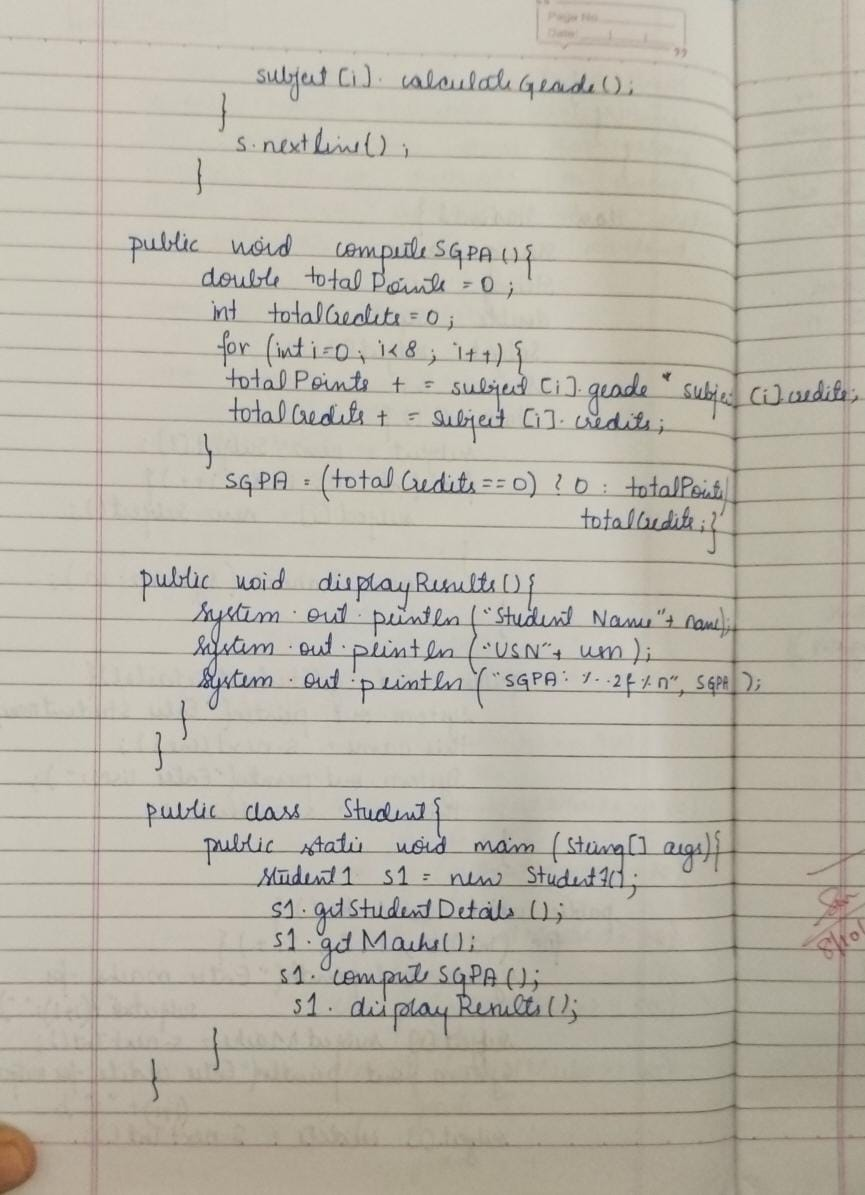 Page No.
Date:
subject [i]. calculate Grade();
}
s.nextLine();
}
public void compute SGPA () {
double total Points = 0;
int totalCredits = 0;
for (int i=0; i<8; i++) {
total Points + = subject [i]. grade * subject [i].credits;
total Credits + = subject [i]. credits;
}
SGPA = (total Credits == 0) ? 0 : totalPoints/
totalCredits;}
public void displayResults() {
System.out.println ("Student Name"+ name);
System.out.println ("USN"+ usn);
System.out.println ("SGPA: %.2f%n", SGPA);
}
}
public class Student {
public static void main (String[] args) {
Student1 s1 = new Student1();
s1.getStudentDetails ();
s1.get Marks();
s1.compute SGPA();
s1.displayResults();
}
}